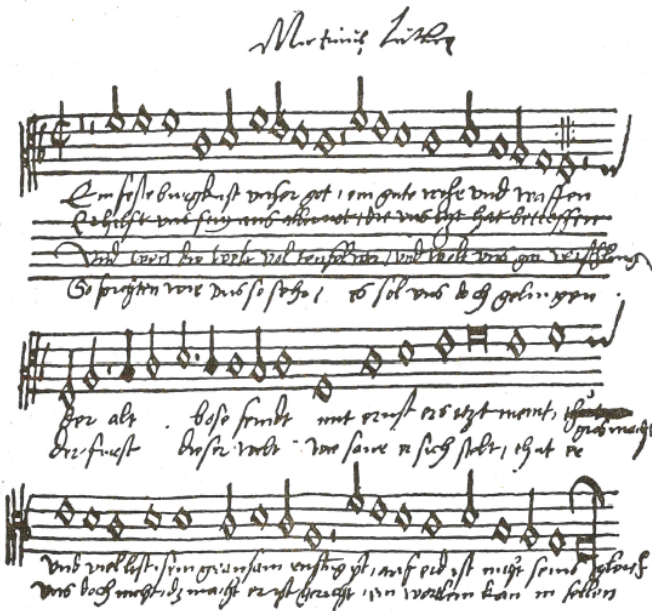 Martinus Luther
Ein feste burgk ist unser got, ein gute wehr und waffen
Er hilft uns frey aus aller not, die uns itzt hat betroffen
Und wen die welt vol teufel wer, und wolt uns gar
So furchten wir uns so sehr, es sol uns doch gelingen
der alt bose feindt mit ernst ers itzt meint,
der furst dieser welt wie saur er sich stelt, thut er
gros macht
und viel list, sein grausam rustung ist, auf erd ist nicht seins gleich
uns doch nicht, macht er ist gericht, ein wortlein kan in fellen